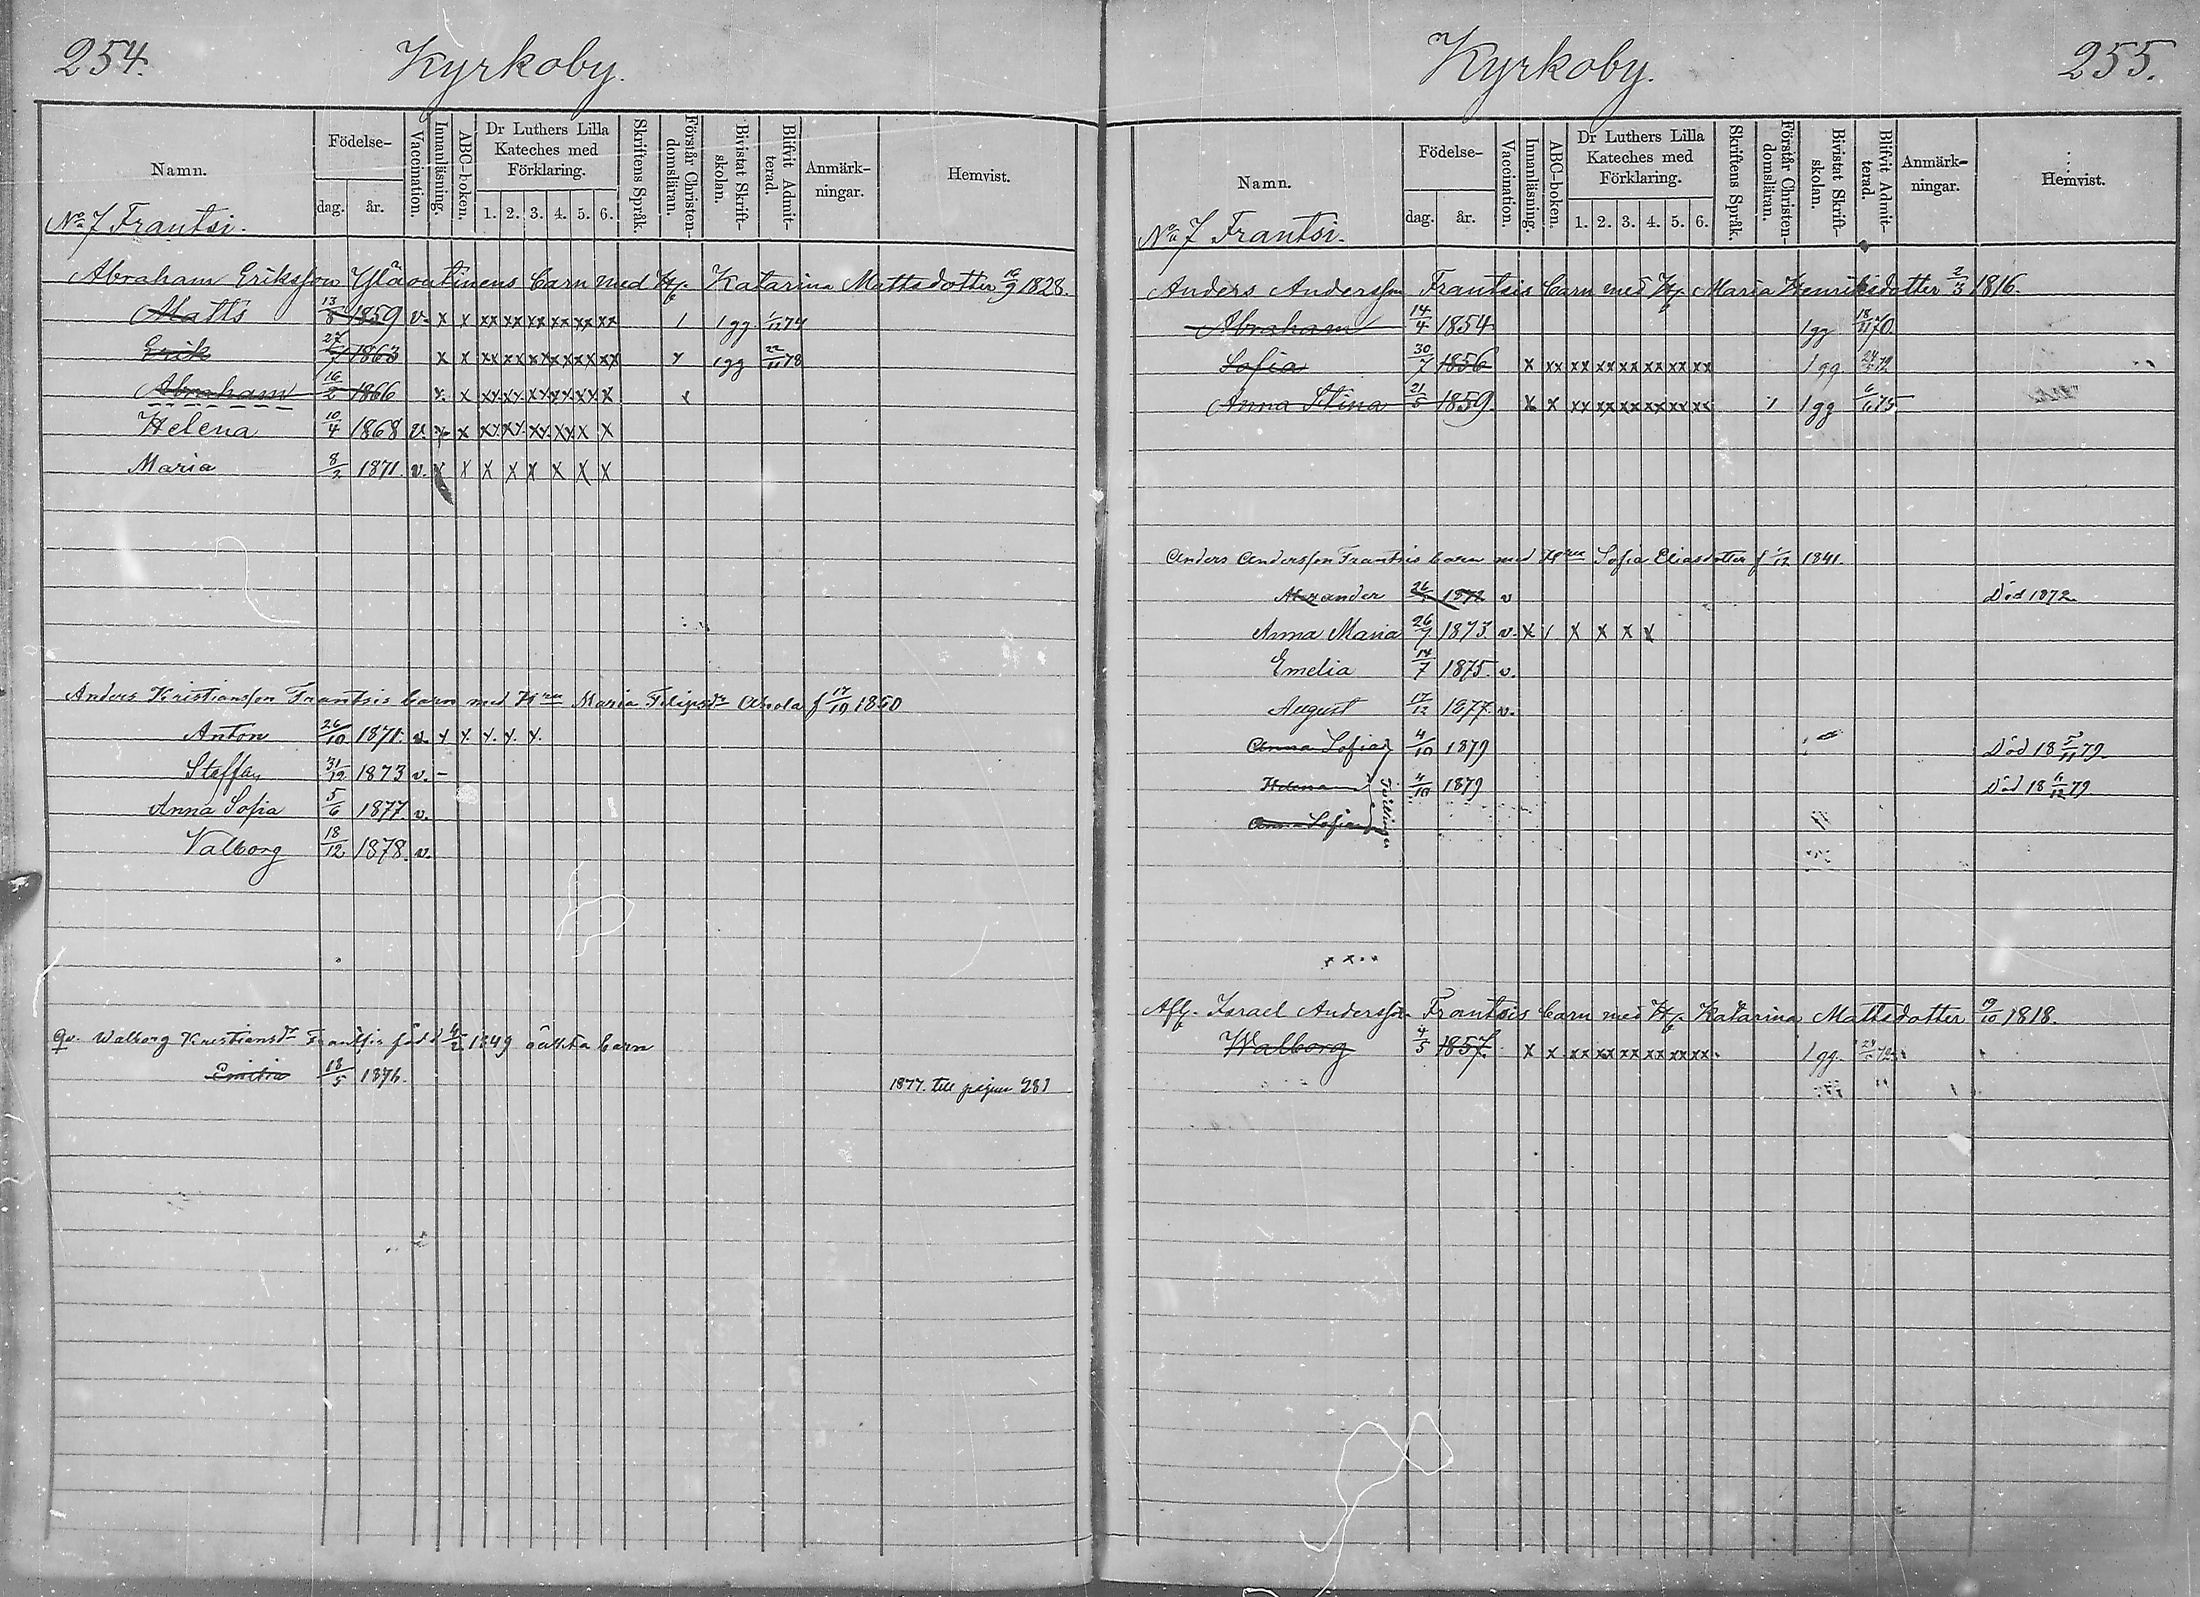 254. Kyrkoby.
Namn. Födelse- Vaccination. Innanläsning. ABC-boken. Dr Luthers Lilla Kateches med Förklaring. Skriftens Språk. Förstår Christen-domsläran. Bivistat Skrift-skolan. Blifvit Admit-terad. Anmärk-ningar. Hemvist.
dag. år. 1. 2. 3. 4. 5. 6.
No 7 Frantsi.
Abraham Eriksson barn med Katarina Mattsdotter 1828.
Matts 13/8 1859 v. x x xx xx xx xx xx xx 1 1 gg
Erik 27/7 1863 x x xx xx xx xx xx xx 1 gg 22/11 78
Abraham 16/2 1866 x x
Helena 10/4 1868 v. x x
Maria 8/2 1871 v. x x x x x x x x
Anders Kristiansson Frantsis barn med Hru Maria Filipsdr f 1850
Anton 26/10 1871. v. x x. x. x. x.
Steffan 31/12 1873 v. -
Anna Sofia 5/6 1877 v.
Valborg 18/12 1878 v.
Qv. Walborg Kristiansdr Frantsis född 4/2 1849 oäkta barn
Emilia 18/5 1876. 1877. till pagina 281
255. Kyrkoby.
Namn. Födelse- Vaccination. Innanläsning. ABC-boken. Dr Luthers Lilla Kateches med Förklaring. Skriftens Språk. Förstår Christen-domsläran. Bivistat Skrift-skolan. Blifvit Admit-terad. Anmärk-ningar. Hemvist.
dag. år. 1. 2. 3. 4. 5. 6.
No 7 Frantsi.
Anders Andersson Frantsis barn med Maria Henriksdotter 2/3 1816.
Abraham 14/4 1854 1 gg 18/11 70
Sofia 30/7 1856 x xx xx xx xx xx xx xx 1 gg
Anna Stina 21/5 1859. x x xx xx xx xx xx xx 1 gg
Anders Andersson Frantsis barn med Hru Sofia Eliasdotter f 1/12 1841.
Alexander 1872 v Död 1872
Anna Maria 26/7 1873 v. x / x x x x
Emelia 14/7 1875. v.
August 17/12 1877. v.
Anna Sofia 4/10 1879 Död 18 5/11 79.
Helena 4/10 1879 Död 18 4/12 79
Anna Sofia
Israel Andersson Frantsis barn med Katarina Mattsdotter 1818.
Walborg 4/5 1857. x x xx xx xx xx xx xx. 1 gg.